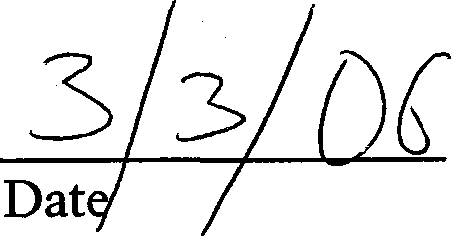 3/3/06
Date